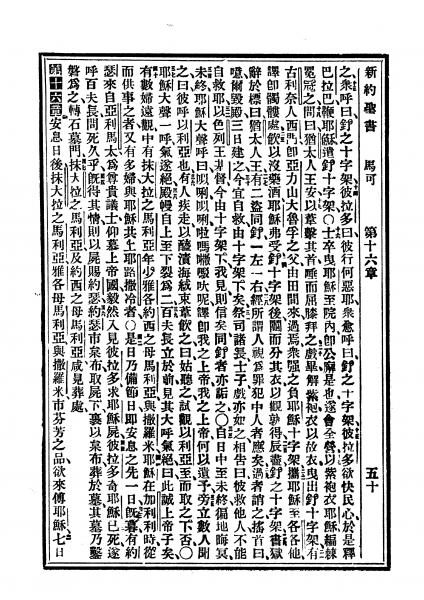 新約聖書 馬可 第十六章 五十
之衆呼曰、釘之十字架、彼拉多曰、彼行何惡耶、衆愈呼曰、釘之十字架、彼拉多欲快民心、於是釋
巴拉巴、鞭耶穌、遣釘十字架○士卒曳耶穌至院內、卽公廨是也、遂會全營、以紫袍衣耶穌、編棘
冕冠之、問曰、猶太人王安、以葦擊其首、唾而屈膝拜之、戲畢、解紫袍、衣以故衣、曳出釘十字架、有
古利奈人西門、卽亞力山大魯孚之父、由田間來過焉、衆強之負耶穌十字架、攜耶穌至各各他、
譯卽髑髏處、飲以沒藥酒、耶穌弗受、釘十字架後、鬮而分其衣、以觀孰得、辰盡、釘之十字架、書獄
辭於標曰、猶太人王、有二盜同釘、一左一右、經所謂人視爲罪犯中人者應矣、過者誚之、搖首曰、
噫、爾毀殿三日建之、今宜自救、由十字架下矣、祭司諸長士子戲亦如之、相告曰、彼救他人、不能
自救耶、以色列王基督、今由十字架下、我見則信矣、同釘者亦詬之○自日中至未終、徧地晦冥、
未終、耶穌大聲呼曰、以唎以唎啦嗎撒嚗呔呢、譯卽我之上帝、我之上帝、何以遺予、旁立數人聞
之曰、彼呼以利亞也、有人疾走、以醯漬海絨、束葦飲之曰、姑聽之、試觀以利亞至而取之下否○
耶穌大聲一呼、氣遂絶、殿幔自上至下裂爲二、百夫長立於前、見其大呼氣絶曰、此誠上帝子矣、
有數婦遠觀、中有抹大拉之馬利亞、年少雅各約西之母馬利亞、與撒羅米、耶穌在加利利時、從
而供事之者、又有多婦與耶穌共上耶路撒冷者○是日乃備節日、卽安息之先一日、旣暮、有約
瑟來自亞利馬太、爲尊貴議士、仰慕上帝國、毅然入見彼拉多、求耶穌屍、彼拉多奇耶穌已死、遂
呼百夫長、問死久乎、旣得其情、則以屍賜約瑟、約瑟市枲布、取屍下、裹以枲布、葬於墓、其墓乃鑿
磐爲之、轉石墓門、抹大拉之馬利亞及約西之母馬利亞、咸見葬處、
第十六章 安息日後、抹大拉之馬利亞、雅各母馬利亞、與撒羅米、市芬芳之品、欲來傅耶穌、七日